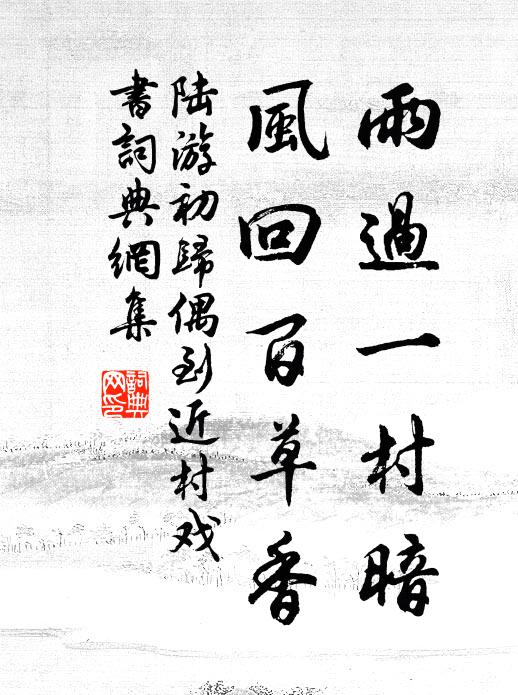 雨過一村暗
風回百草香
陆游初歸偶到近村戏
書詞典網集
詞典
网印